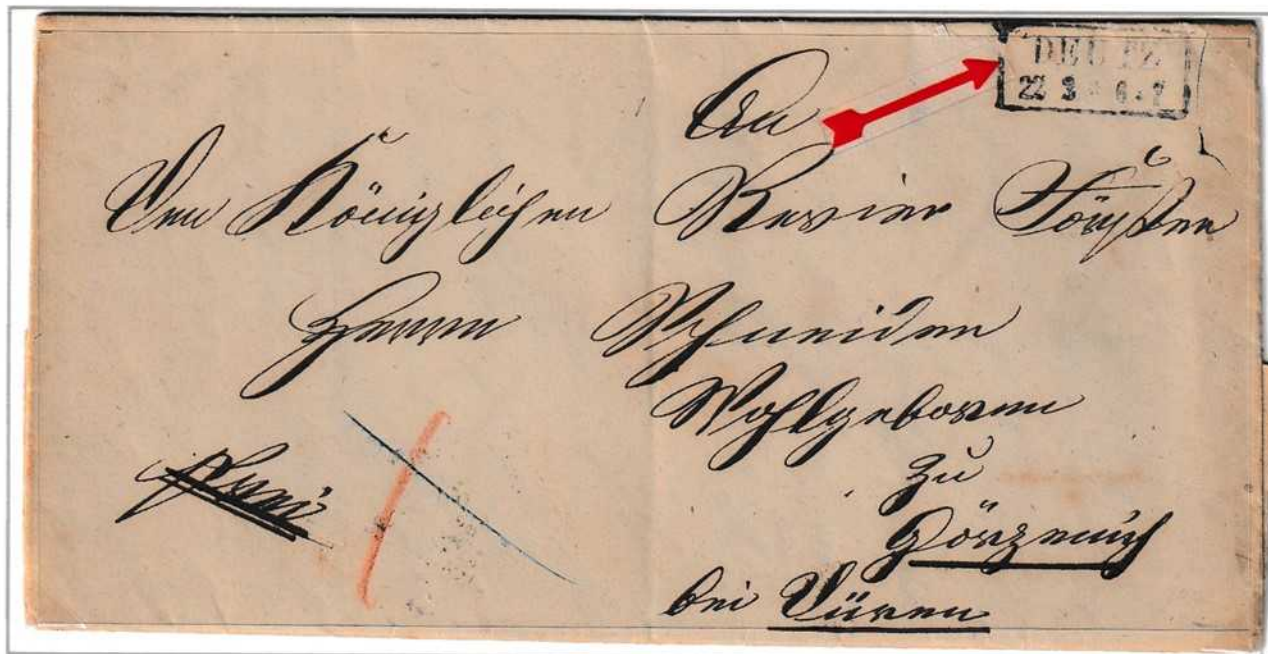 DEUTZ
22 3 * 6-7
An
Den Königlichen Revier Förster
Herrn Schneider
Wohlgeboren
zu
Görzenich
bei Düren
frei